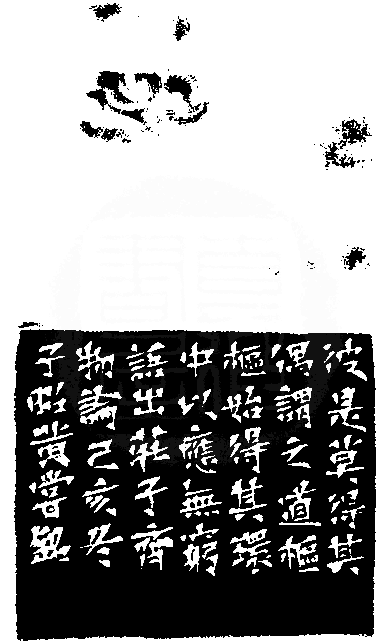 彼是莫得其
偶謂之道樞
樞始得其環
中以應無窮
語出莊子齊
物論己亥冬
子昭黃嘗